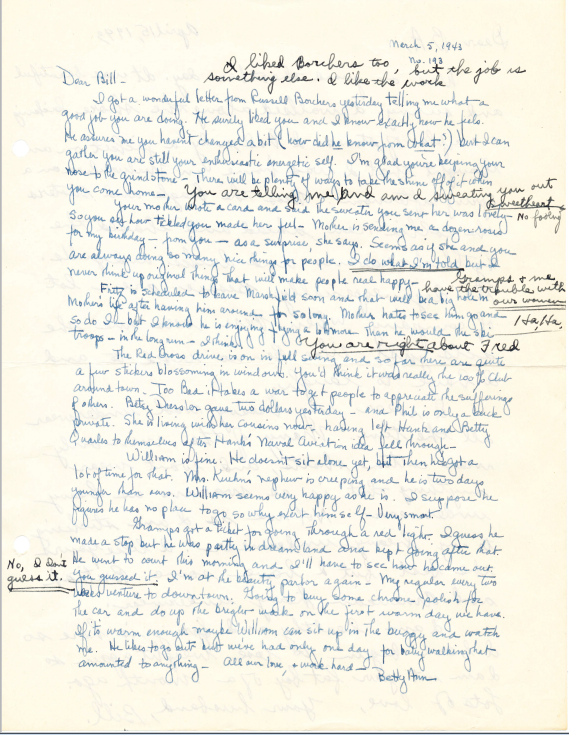 March 5, 1943
No. 193
I liked Borchers too, but the job is
something else. I like the work
Dear Bill -
I got a wonderful letter from Russell Borchers yesterday telling me what a
good job you are doing. He surely liked you and I know exactly how he feels.
He assures me you haven't changed a bit (how did he know from what?) but I can
gather you are still your enthusiastic energetic self. I'm glad you're keeping your
nose to the grindstone - There will be plenty of ways to take the shine off of it when
you come home - You are telling me, and am I sweating you out
sweetheart
Your mother wrote a card and said the sweater you sent her was lovely - No fooling
so you see how tickled you made her feel - Mother is sending me a dozen roses
for my birthday - from you - as a surprise, she says. Seems as if she and you
are always doing so many nice things for people. I do what I'm told but I
never think up original things that will make people real happy - Gramps & me
have the trouble with
our women
Ha, Ha,
Fritz is scheduled to leave Marshfield soon and that will be a big hole in
Mother's life after having him around for so long. Mother hates to see him go and
so do I - but I know he is enjoying flying a lot more than he would the ski
troops - in the long run - I think. You are right about Fred
The Red Cross drive is on in full swing and so far there are quite
a few stickers blossoming in windows. You'd think it was really the 100% Club
around town. Too bad it takes a war to get people to appreciate the sufferings
of others. Betsy Dressler gave two dollars yesterday - and Phil is only a buck
private. She is living with her cousins now - having left Hank and Betty
Quarles to themselves after Hank's Naval Aviation idea fell through -
William is fine. He doesn't sit alone yet, but then he's got a
lot of time for that. Mrs. Kuehn's nephew is creeping and he is two days
younger than ours. William seems very happy as he is. I suppose he
figures he has no place to go so why exert himself - Very smart.
Gramps got a ticket for going through a red light. I guess he
made a stop but he was partly in dreamland and kept going after that.
He went to court this morning and I'll have to see how he came out.
No, I don't
guess it.
You guessed it. I'm at the beauty parlor again - My regular every two
weeks venture to downtown. Going to buy some chrome polish for
the car and do up the bright work on the first warm day we have.
If it's warm enough maybe William can sit up in the buggy and watch
me. He likes to go out but we've had only one day for baby walking that
amounted to anything - All our love, & work hard -
Betty Ann